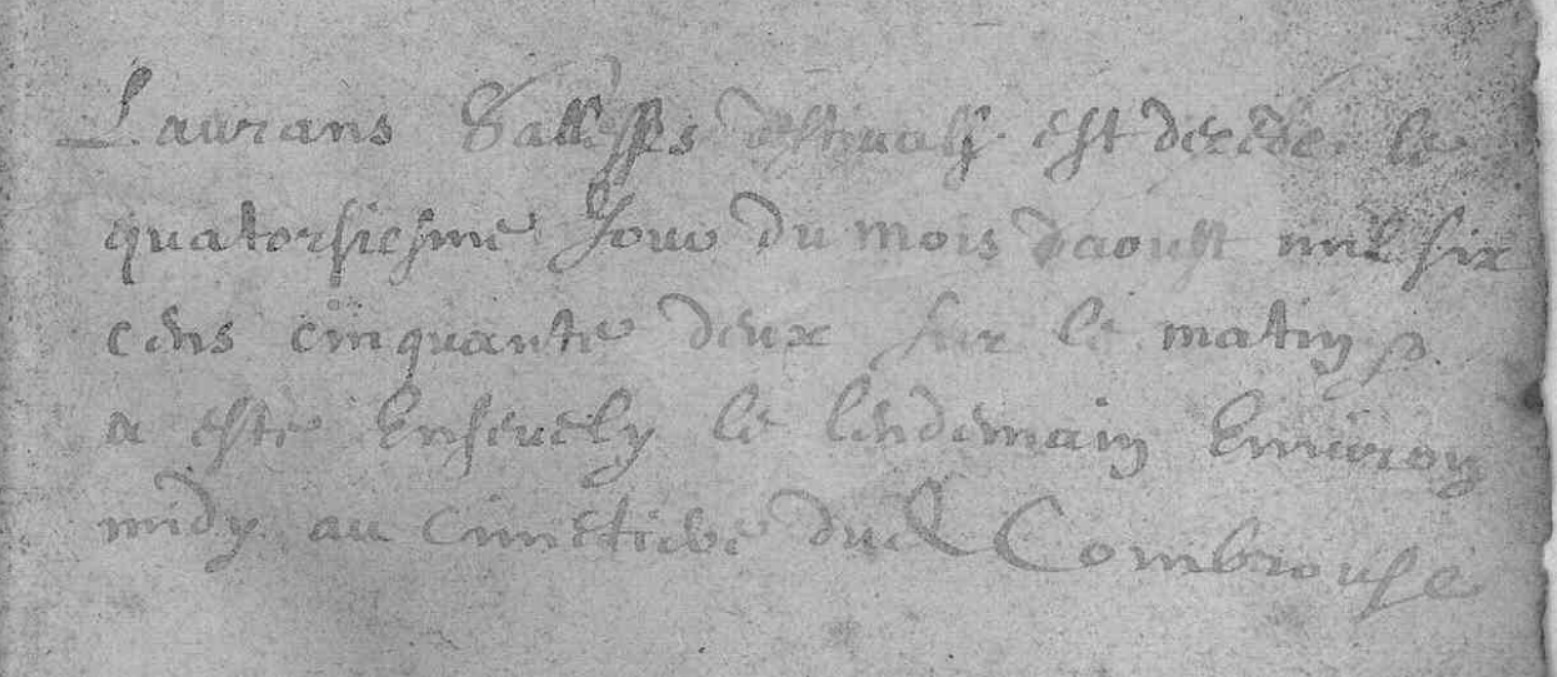 Laurans est decede le
quatorsiesme Jour du mois daoust mil six
cens cinquante deux sur le matin &
a este Ensevely le lendemain Environ
midy au cimetiere dud Combrouse